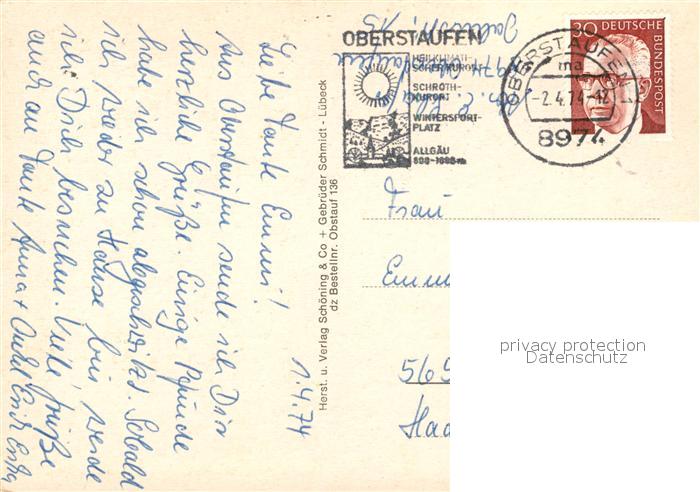 1.4.74
Liebe Tante Emmi!
Aus Oberstaufen sende ich Dir
herzliche Grüße. Einige Pfunde
habe ich schon abgeschwitzt. Sobald
ich wieder zu Hause bin werde
ich Dich besuchen. Viele Grüße
auch an Tante Anna + Onkel Erich
Herst. u. Verlag Schöning & Co + Gebrüder Schmidt - Lübeck
dz Bestellnr. Obstauf 136
OBERSTAUFEN
HEILKLIMATI-
SCHER KURORT
SCHROTH-
KURORT
WINTERSPORT-
PLATZ
ALLGÄU
OBERSTAUFEN
ma
-2.4.74-12
8974
30 DEUTSCHE
BUNDESPOST
Frau
Emm
565
Haa
privacy protection
Datenschutz